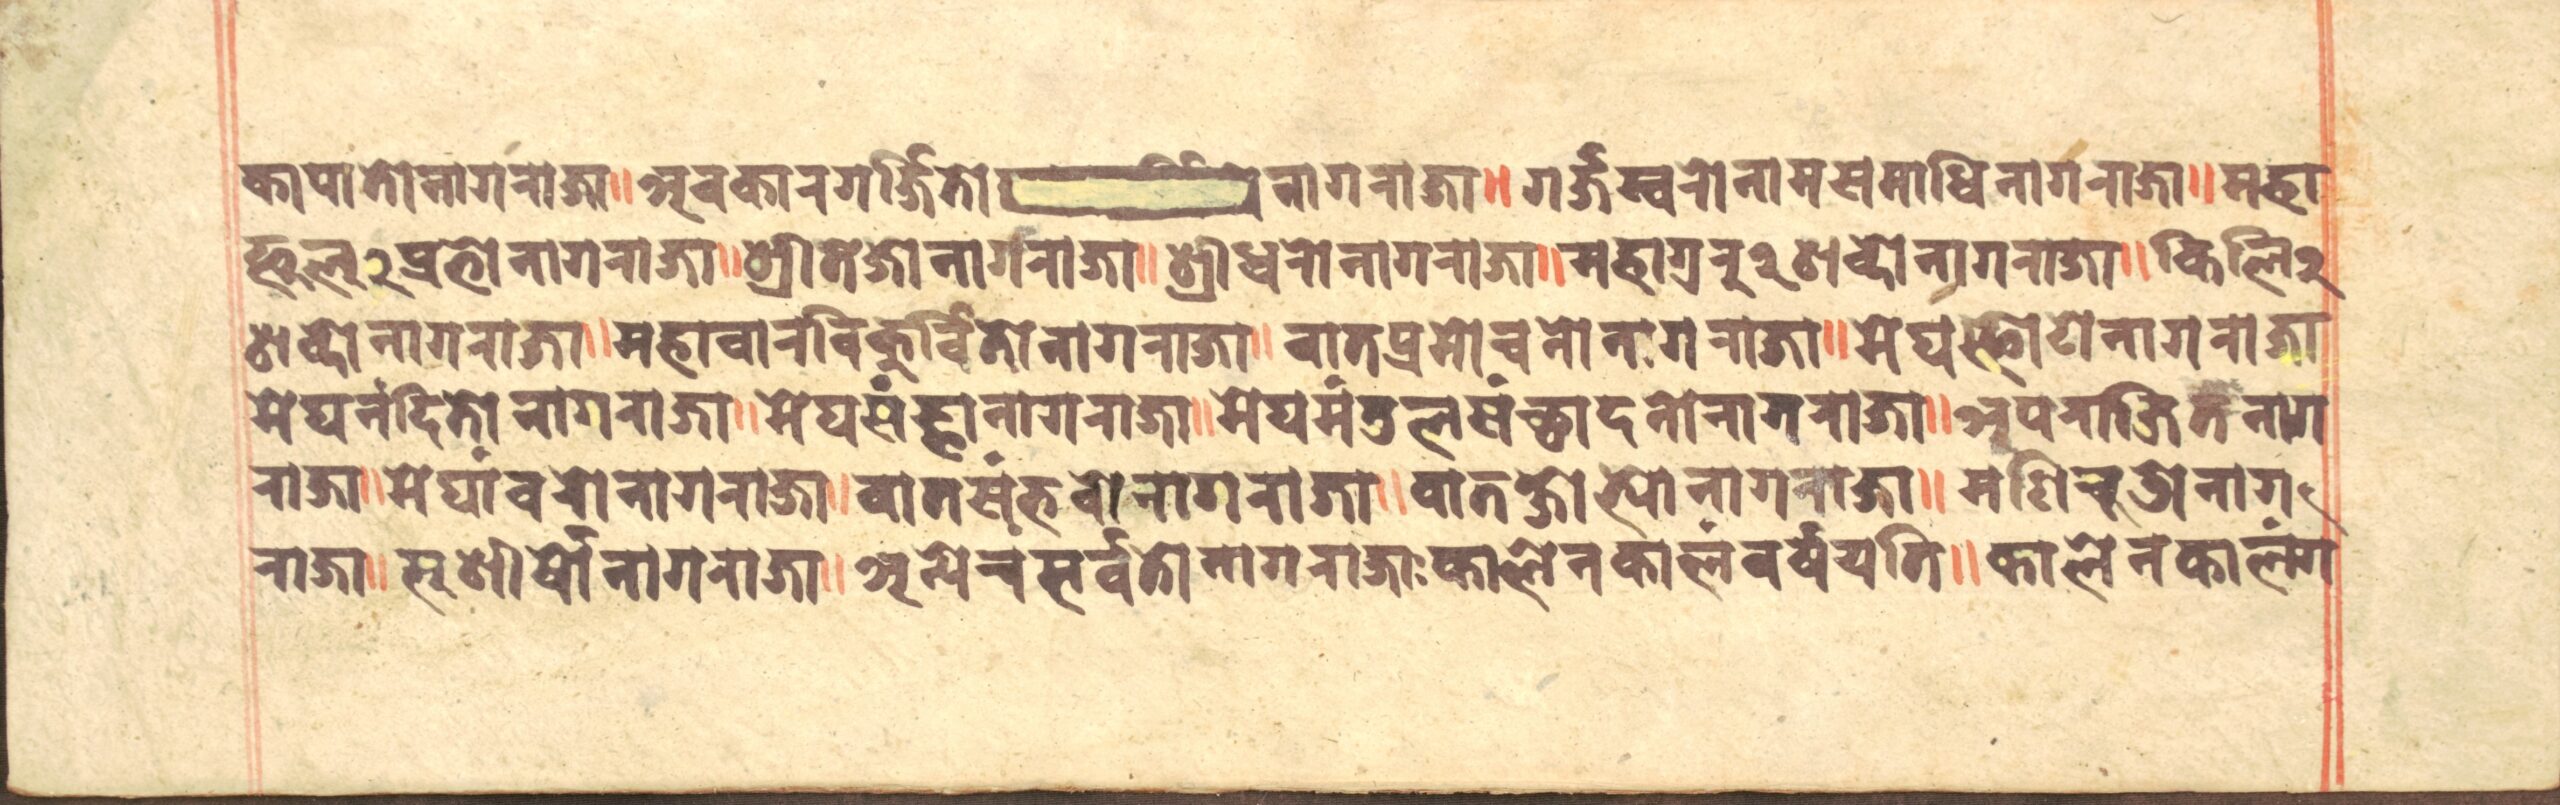 कापातो नागराजा॥ अवकारगर्जितो नागराजा॥ गर्जस्वरो नाम समाधि नागराजा॥ महा
हुलु२ प्रहो नागराजा॥ श्रीतेजो नागराजा॥ श्रीधरो नागराजा॥ महाग्ररु२ शब्दो नागराजा॥ किलि२
शब्दो नागराजा॥ महावारविकुर्वितो नागराजा॥ वातप्रमोचनो नागराजा॥ मेघस्फोटो नागराजा
मेघनंदितो नागराजा॥ नागराजा॥ मेघमंतुलसंच्छादनो नागराजा॥ अपराजित नाग
राजा॥ मेघांवरो नागराजा॥ वातसंहवो नागराजा॥ नागराजा॥ मणिचूडो नाग
राजा॥ सुशीर्षो नागराजा॥ सर्वतो नागराजाः कालेन कालं वर्षयति॥ कालेन कालंग